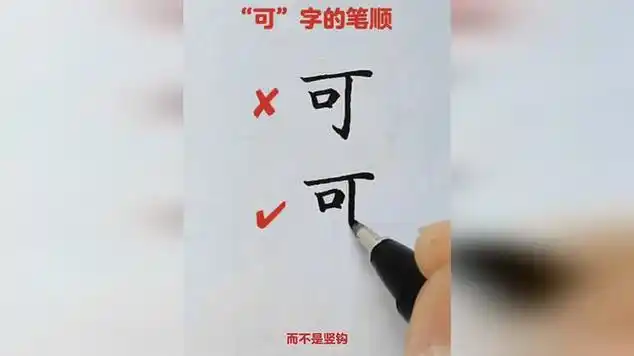 “可”字的笔顺
✘ 可
✔ 可
而不是竖钩